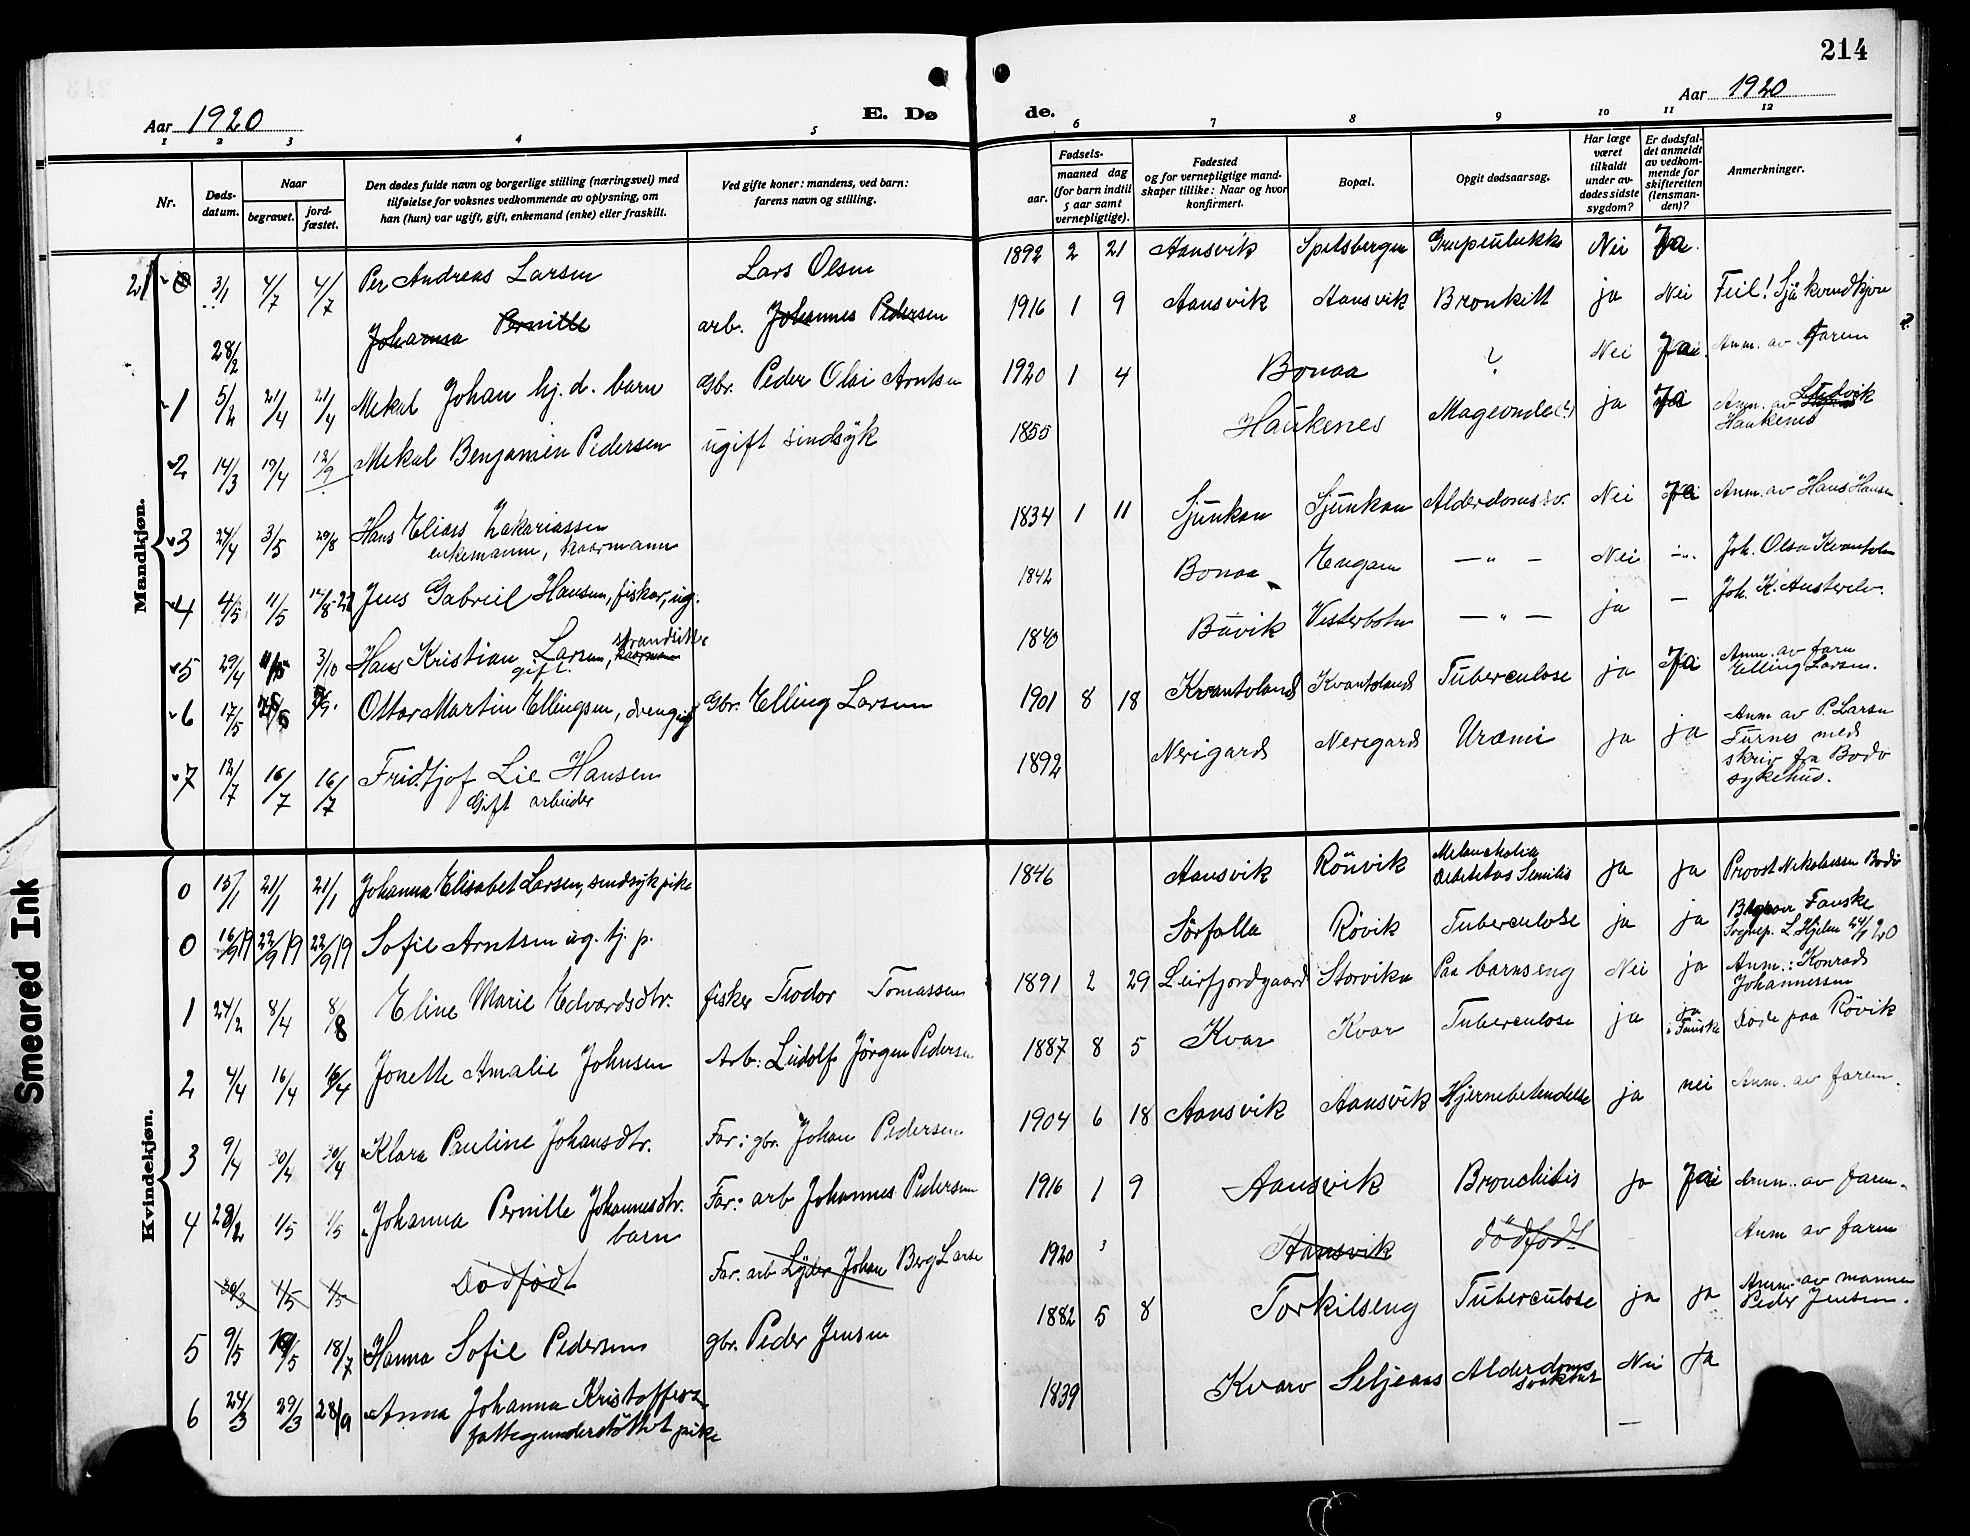 214
Aar 1920
E. Dø
de.
Aar 1920
1 2 3 4 5 6 7 8 9 10 11 12
Nr.
Døds-
datum.
Naar
begravet.
jord-
fæstet.
Den dødes fulde navn og borgerlige stilling (næringsvei) med
tilføielse for voksnes vedkommende av oplysning, om
han (hun) var ugift, gift, enkemand (enke) eller fraskilt.
Ved gifte koner: mandens, ved barn:
farens navn og stilling.
Fødsels-
aar.
maaned dag
(for barn indtil
5 aar samt
vernepligtige).
Fødested
og for vernepligtige mand-
skaper tillike: Naar og hvor
konfirmert.
Bopæl.
Opgit dødsaarsag.
Har læge
været
tilkaldt
under av-
dødes sidste
sygdom?
Er dødsfal-
det anmeldt
av vedkom-
mende for
skifteretten
(lensman-
den)?
Anmerkninger.
Mandkjøn.
21 3/1 4/7 4/7 Per Andreas Larsen Lars Olsen 1892 2 21 Aansvik Spetsbergen Nei Ja
28/2 Johanna Pernille arb. Johannes Pedersen 1916 1 9 Aansvik Aansvik Bronkitt ja Nei Feil! Sjå kvendkjøn
1 5/2 21/4 21/4 Mekal Johan hj. d. barn Gbr. Peder Olai Arntsen 1920 1 4 Bonaa ? Nei Ja Anm. av Faren
2 14/3 19/4 12/9 Mekal Benjamin Pedersen ugift sindsyk 1855 Haukenes Mageonde (?) ja Ja Anm. av Ludvik
Haukenes
3 24/4 3/5 29/8 Hans Eliass Zakariassen 1834 1 11 Sjunkan Sjunkan Alderdoms sv. Nei Ja Anm. av Hans Hansen
enkemann, kaarmann
4 4/5 11/5 Jens Gabriel Hansen, fisker, ug. 1842 Bonaa Engan — " — Nei Joh. Olsa Kvantoln
5 29/4 3/10 Hans Kristian Larsen, strandsitte 1840 Buvik Vesterbotn — " — ja — Joh. K. Austerelv.
gift.
6 17/5 Ottar Martin Ellingsen, Gbr. Elling Larsen 1901 8 18 Kvantoland Kvantoland Tuberculose ja Ja Anm. av faren
Elling Larsen.
7 12/7 16/7 16/7 Fridtjof Lie Hansen 1892 Nerigard Nerigard Uræmi ja ja Anm av P. Larsen
Gift arbeider
Furnes med
skriv fra Bodø
sykehus.
Kvindekjøn.
0 15/1 21/1 21/1 Johanna Elisabet Larsen, sindsyk pike 1846 Aansvik Rönvik Melancholia
Senilis ja ja Provst Nikolaissen Bodø
0 16/9 19 22/9 19 22/9 19 Sofie Arntsen ug. tj. p. Sörfolla Røvik Tuberculose ja ja Fauske
Sognep. L Hjelm 24/9 20
1 24/2 8/4 8/8 Eline Marie Edvardsdtr. fisker Teodor Tomassen 1891 2 29 Leirfjordgaard Storvika Paa barnseng Nei ja Anm.: Konrad
Johannessen
2 4/4 16/4 16/4 Jonette Amalie Johnsen Arb: Ludolf Jörgen Pedersen 1887 8 5 Kvar Kvar Tuberculose ja ja
i Fauske Døde paa Røvik
3 9/4 30/4 30/4 Klara Pauline Johansdtr. Far: gbr. Johan Pedersen 1904 6 18 Aansvik Aansvik Hjernebetendelse ja nei Anm. av faren.
4 28/2 1/5 1/5 Johanna Pernille Johannesdtr. Far: arb Johannes Pedersen 1916 1 9 Aansvik Bronchitis ja Ja Anm. av faren.
barn
30/3 1/5 1/5 Dødfødt Far. arb Lyder Johan Berg Larse 1920 3 Aansvik dødfødt Anm av faren
5 9/5 18/7 Hanna Sofie Pedersen gbr. Peder Jensen 1882 5 8 Torkilseng Tuberculose ja ja Anm. av mannen
Peder Jensen.
6 24/3 29/3 28/9 Anna Johanna Kristoffersz. 1839 Kvarv Seljeaas Alderdoms
svakhet Nei ja
fattigunderstöttet pike
—
Smeared Ink